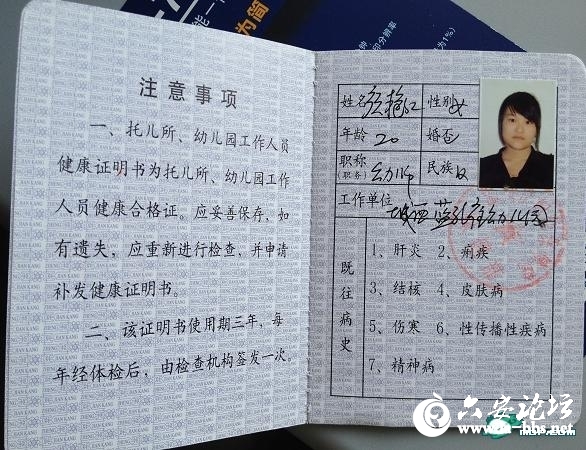 为简
注意事项
一、托儿所、幼儿园工作人员
健康证明书为托儿所、幼儿园工作
人员健康合格证。应妥善保存，如
有遗失，应重新进行检查，并申请
补发健康证明书。
二、该证明书使用期三年，每
年经体检后，由检查机构签发一次。
姓名 性别 女
年龄 20 婚否
职称(职务) 幼师 民族 汉
工作单位 城西蓝孔雀幼儿园
既往病史
1、肝炎 2、痢疾
3、结核 4、皮肤病
5、伤寒 6、性传播性疾病
7、精神病
六安论坛